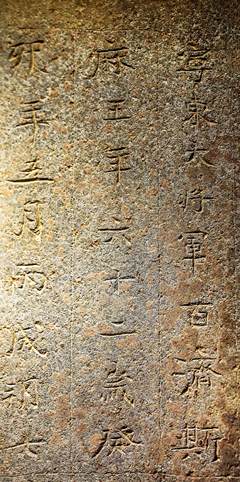 寧東大将軍百濟斯
麻王年六十二歲癸
卯年五月丙戌朔七